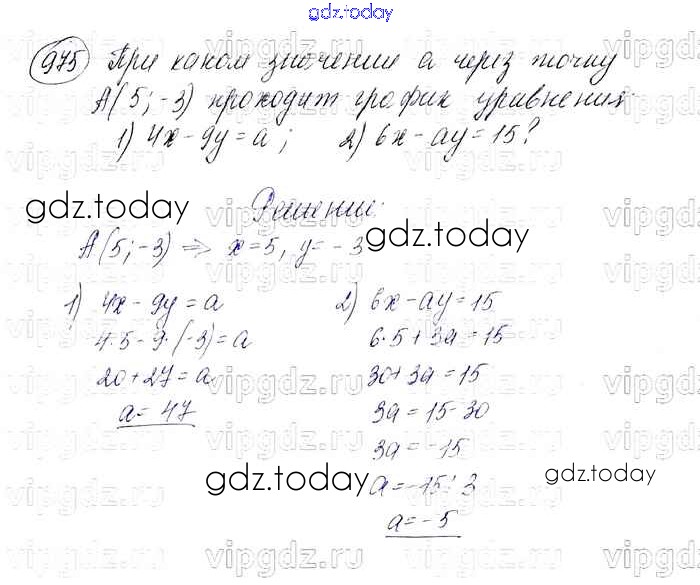 gdz.today
975 При каком значении а через точку
А(5; -3) проходит график уравнения:
1) 4x - 9y = a; 2) 6x - ay = 15?
gdz.today
Решение:
А(5; -3) => x = 5, y = -3
gdz.today
1) 4x - 9y = a
4·5 - 9·(-3) = a
20 + 27 = a
a = 47
2) 6x - ay = 15
6·5 + 3a = 15
30 + 3a = 15
3a = 15 - 30
3a = -15
a = -15 : 3
a = -5
gdz.today
gdz.today
vipgdz.ru